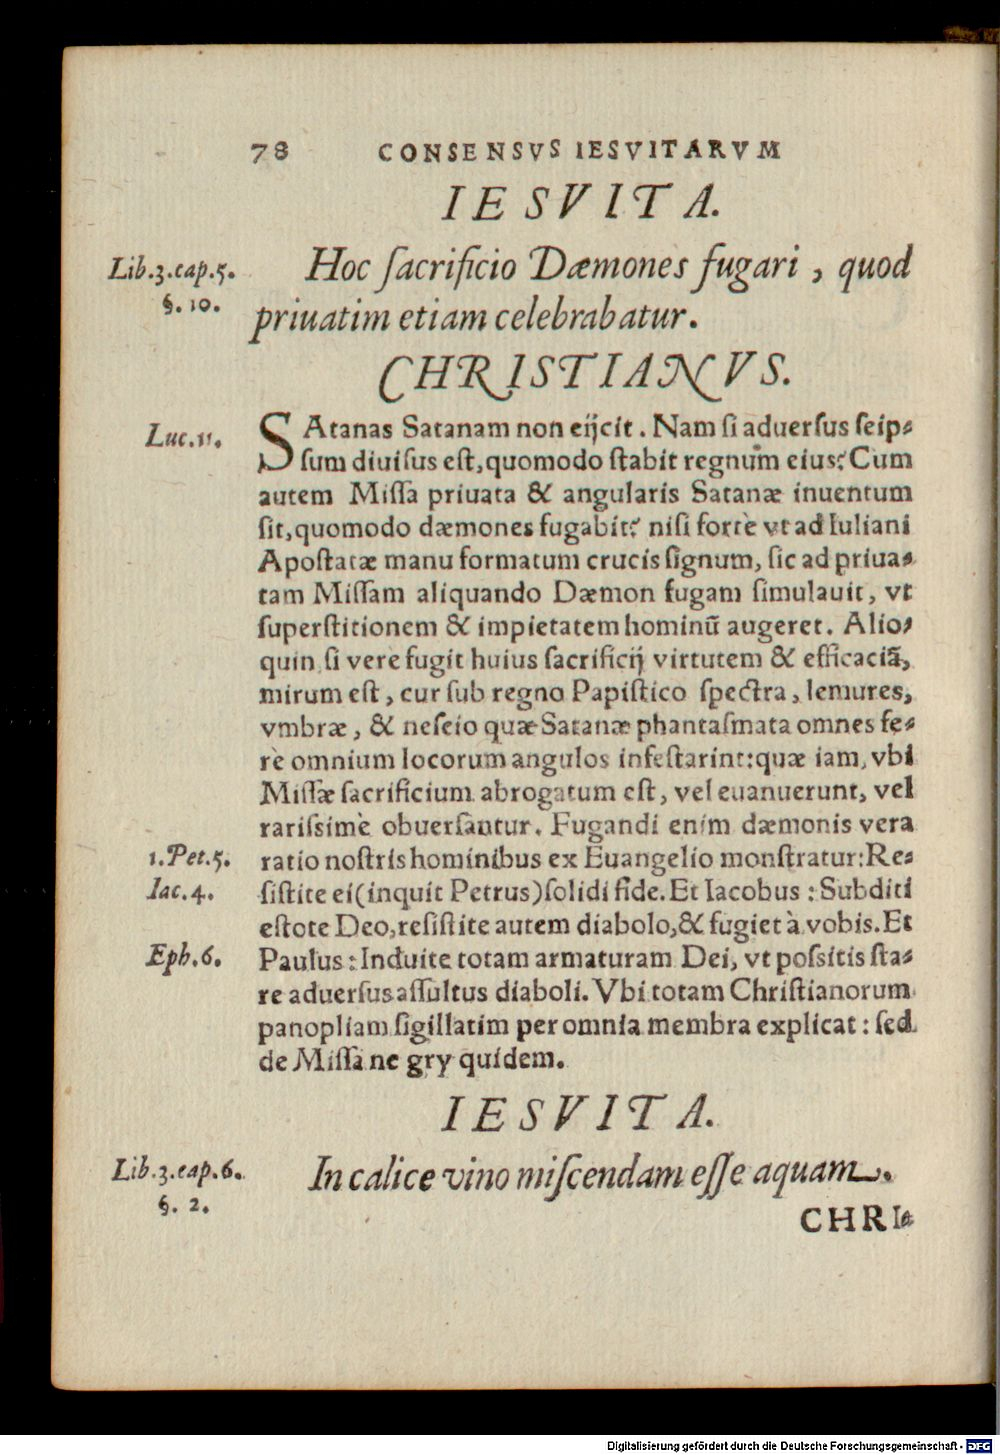 78 CONSENSVS IESVITARVM
IESVITA.
Lib.3.cap.5. Hoc ſacrificio Dæmones fugari, quod
§. 10. priuatim etiam celebrabatur.
CHRISTIANVS.
Luc.11. SAtanas Satanam non eijcit. Nam ſi aduerſus ſeip-
ſum diuiſus eſt, quomodo ſtabit regnum eius? Cum
autem Miſſa priuata & angularis Satanæ inuentum
ſit, quomodo dæmones fugabit? niſi fortè vt ad Iuliani
Apoſtatæ manu formatum crucis ſignum, ſic ad priua-
tam Miſſam aliquando Dæmon fugam ſimulauit, vt
ſuperſtitionem & impietatem hominũ augeret. Alio-
quin ſi verè fugit huius ſacrificij virtutem & efficaciã,
mirum eſt, cur ſub regno Papiſtico ſpectra, lemures,
vmbræ, & neſcio quæ Satanæ phantaſmata omnes fe-
rè omnium locorum angulos infeſtarint: quæ iam, vbi
Miſſæ ſacrificium abrogatum eſt, vel euanuerunt, vel
rariſsimè obuerſantur. Fugandi enim dæmonis vera
1.Pet.5. ratio noſtris hominibus ex Euangelio monſtratur: Re-
Iac.4. ſiſtite ei (inquit Petrus) ſolidi fide. Et Iacobus: Subditi
eſtote Deo, reſiſtite autem diabolo, & fugiet à vobis. Et
Eph.6. Paulus: Induite totam armaturam Dei, vt poſsitis ſta-
re aduerſus aſſultus diaboli. Vbi totam Chriſtianorum
panopliam ſigillatim per omnia membra explicat: ſed
de Miſſa ne gry quidem.
IESVITA.
Lib.3.cap.6. In calice vino miſcendam eſſe aquam.
§. 2.
CHRI-
Digitalisierung gefördert durch die Deutsche Forschungsgemeinschaft - DFG